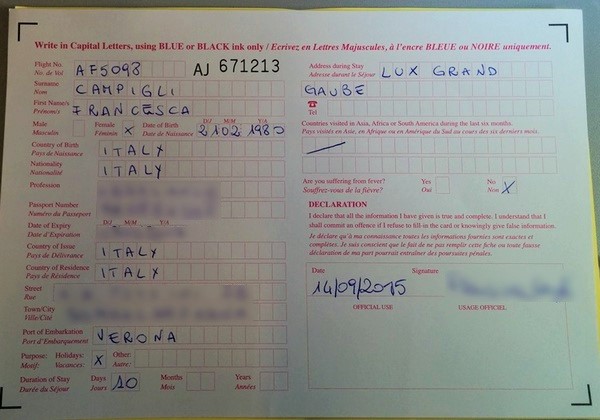 Write in Capital Letters, using BLUE or BLACK ink only / Ecrivez en Lettres Majuscules, à l'encre BLEUE ou NOIRE uniquement.
Flight No.
No. de Vol
AF5098
AJ 671213
Surname
Nom
CAMPIGLI
First Name/s
Prénom/s
FRANCESCA
Male
Masculin
Female
Féminin
X
Date of Birth
Date de Naissance
D/J M/M Y/A
2102 1980
Country of Birth
Pays de Naissance
ITALY
Nationality
Nationalité
ITALY
Profession
Passport Number
Numéro du Passeport
Date of Expiry
Date d'Expiration
D/J M/M Y/A
Country of Issue
Pays de Délivrance
ITALY
Country of Residence
Pays de Résidence
ITALY
Street
Rue
Town/City
Ville/Cité
Port of Embarkation
Port d'Embarquement
VERONA
Purpose:
Motif:
Holidays:
Vacances:
X
Other:
Autre:
Duration of Stay
Durée du Séjour
Days
Jours
10
Months
Mois
Years
Années
Address during Stay
Adresse durant le Séjour
LUX GRAND
GAUBE
Tel
Countries visited in Asia, Africa or South America during the last six months.
Pays visités en Asie, en Afrique ou en Amérique du Sud au cours des six derniers mois.
Are you suffering from fever?
Souffrez-vous de la fièvre?
Yes
Oui
No
Non
X
DECLARATION
I declare that all the information I have given is true and complete. I understand that I
shall commit an offence if I refuse to fill-in the card or knowingly give false information.
Je déclare qu'à ma connaissance toutes les informations fournies sont exactes et
complètes. Je suis conscient que le fait de ne pas remplir cette fiche ou toute fausse
déclaration de ma part pourrait entraîner des poursuites pénales.
Date
Signature
14/09/2015
OFFICIAL USE
USAGE OFFICIEL